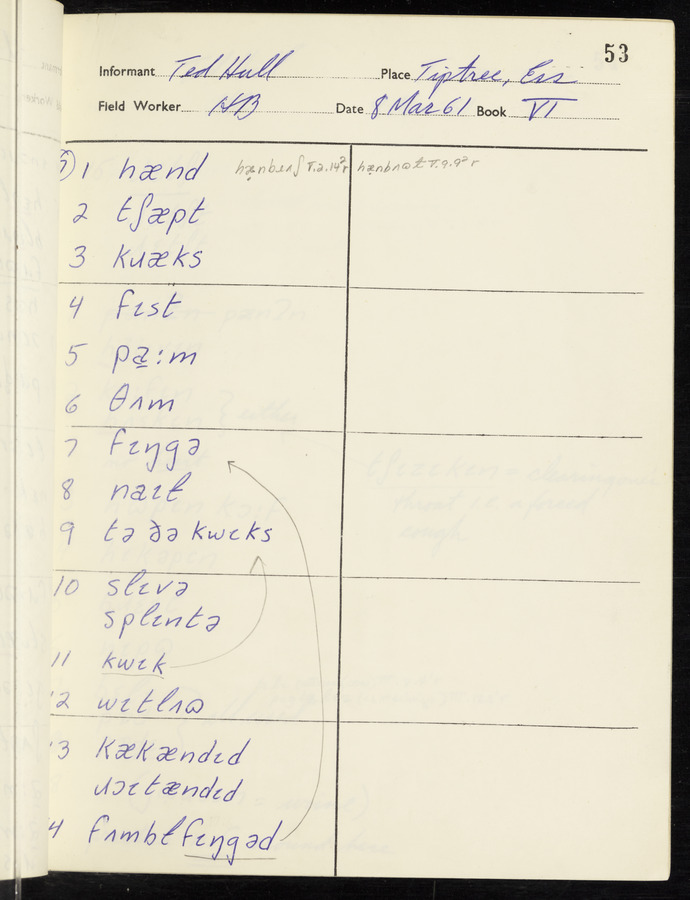 53
Informant Ted Hull Place Tiptree, Ess
Field Worker HB Date 8 Mar 61 Book VI
7) 1 hænd
2 tʃæpt
3 kɹæks
4 fɪst
5 pa̤:m
6 θʌm
7 fɪŋgə
8 naɪt
9 tə ðə kwɪks
10 slɪvə
splɪntə
11 kwɪk
12 wɪtlɪɷ
13 kækændɪd
ɹɔɪtændɪd
14 fʌmblfɪŋgəd